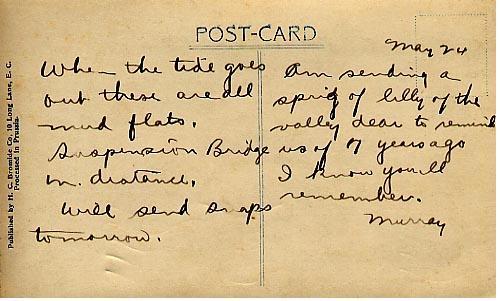 POST-CARD
When the tide goes
out these are all
mud flats.
Suspension Bridge
in distance.
Will send snaps
tomorrow.
May 24
Am sending a
sprig of lilly of the
valley dear to remind
us of 7 years ago
I know you'll
remember.
Murray
Published by H. C. Bromide Co, 10 Long Lane, E. C.
Processed in Prussia.